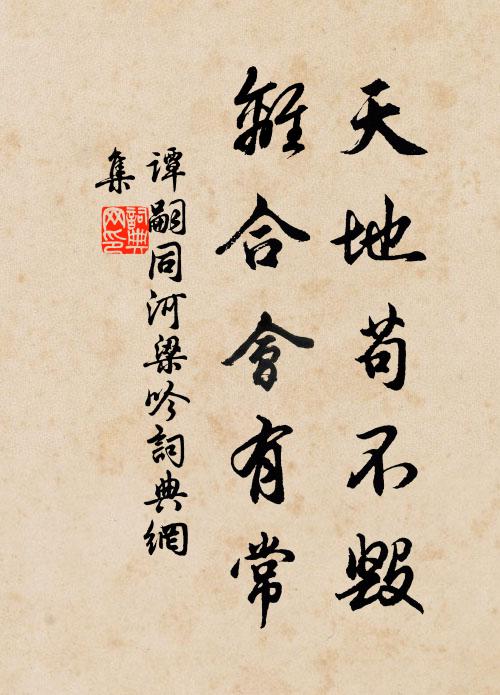 天地苟不毀
離合會有常
譚嗣同河梁吟詞典網
集
詞典網印